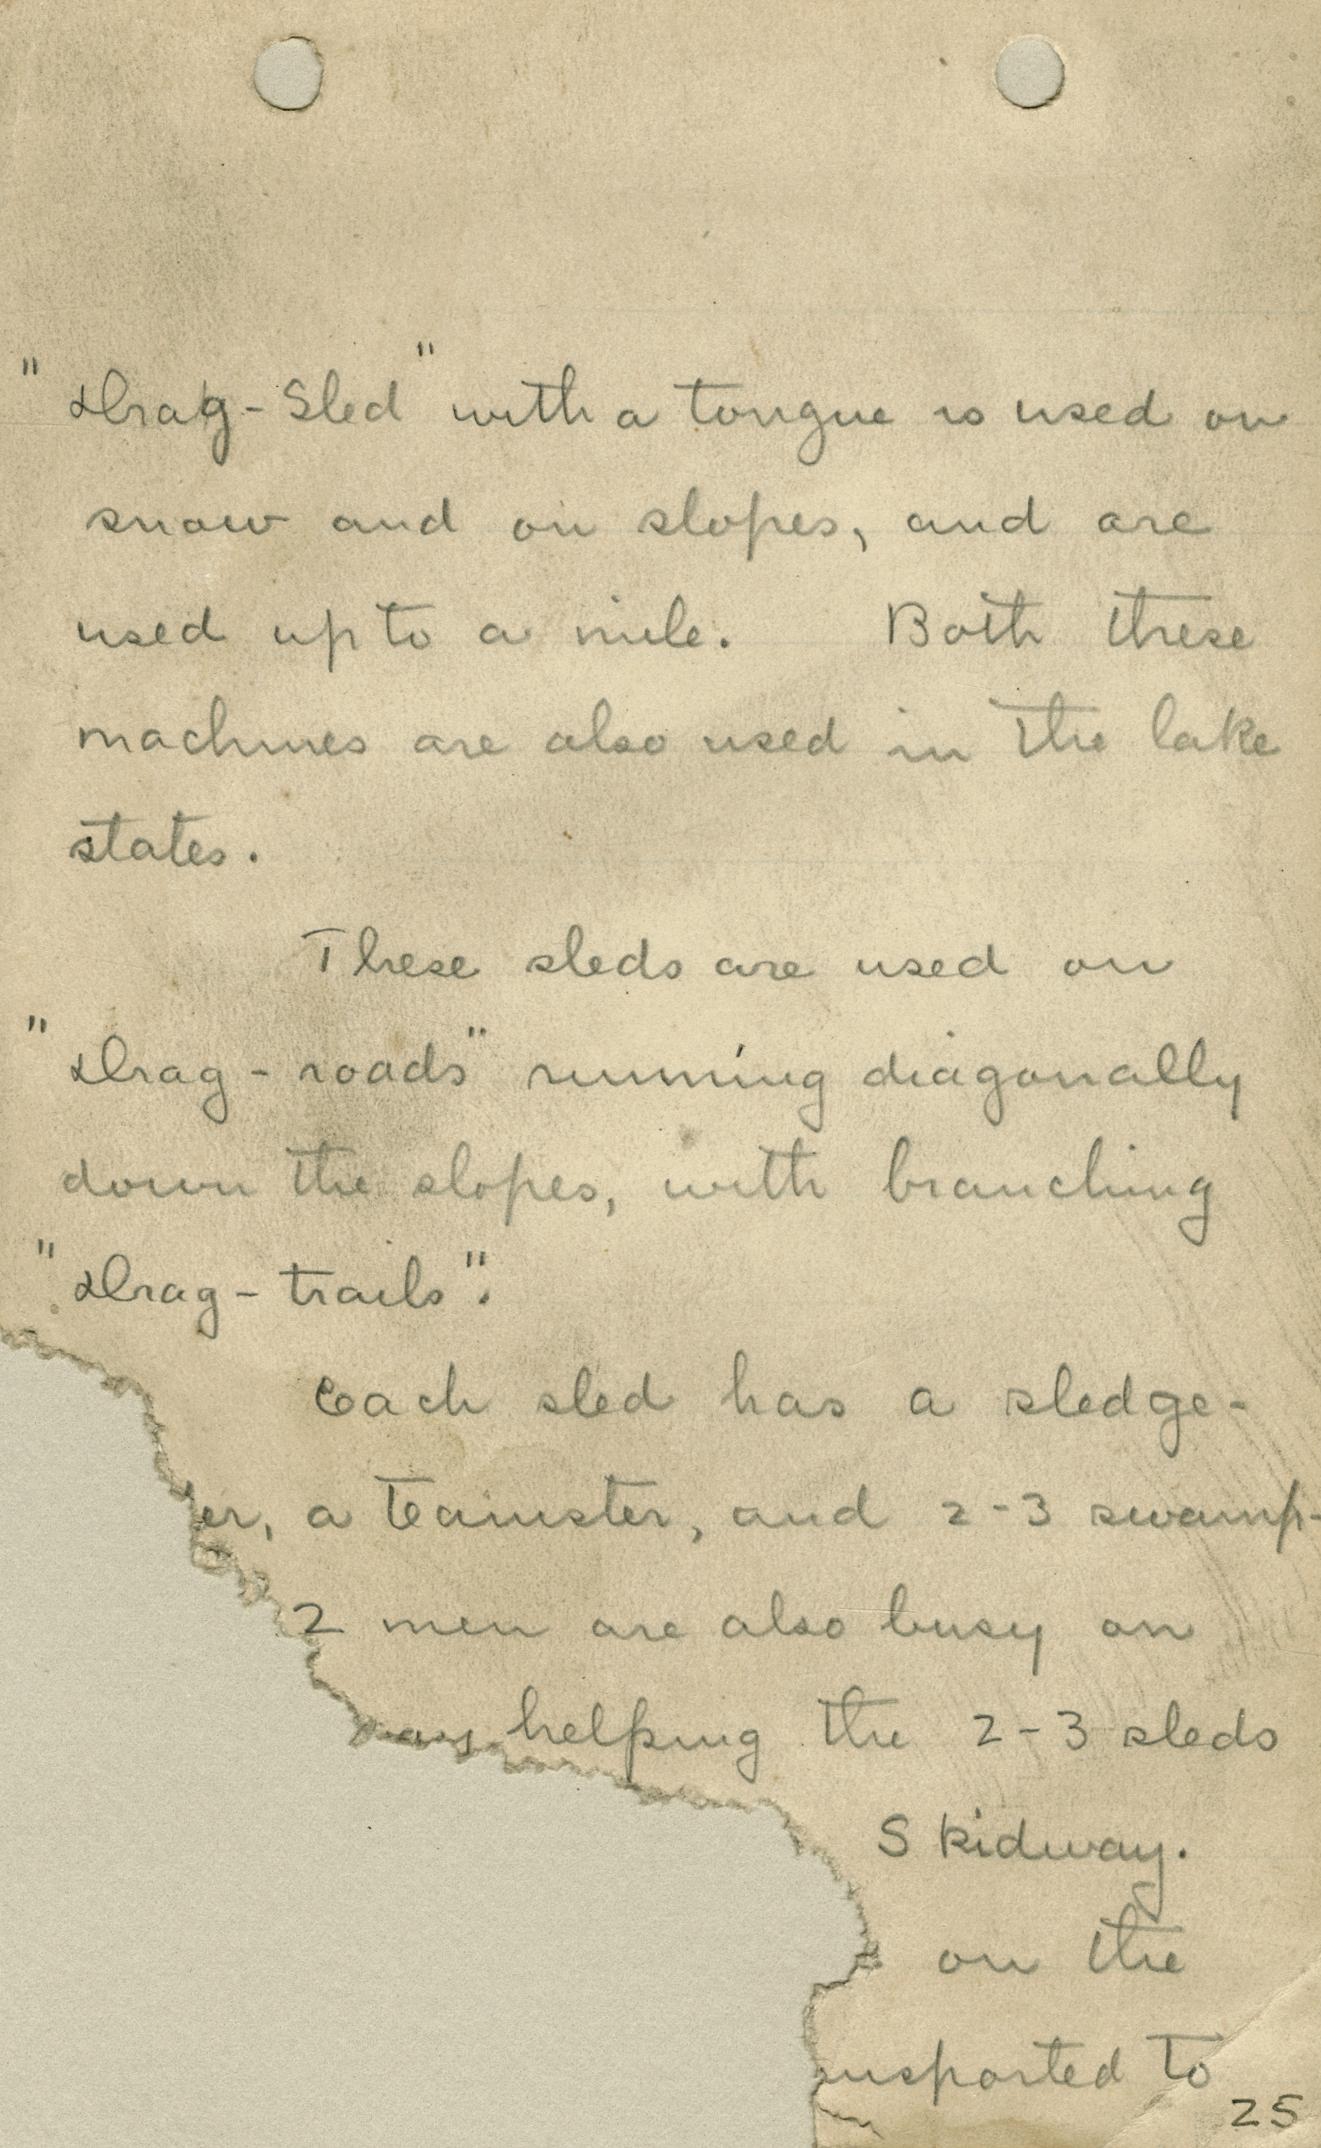 "Drag-Sled" with a tongue is used on
snow and on slopes, and are
used up to a mile. Both these
machines are also used in the lake
states.
These sleds are used on
"Drag-roads" running diagonally
down the slopes, with branching
"Drag-trails".
Each sled has a sledge-
er, a teamster, and 2-3 swamp-
2 men are also busy on
helping the 2-3 sleds
Skidway.
on the
nsported to
25